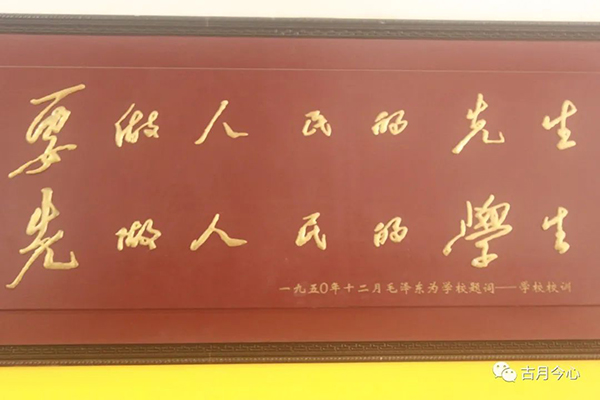 要做人民的先生
先做人民的學生
一九五〇年十二月毛泽东为学校题词——学校校训
古月今心